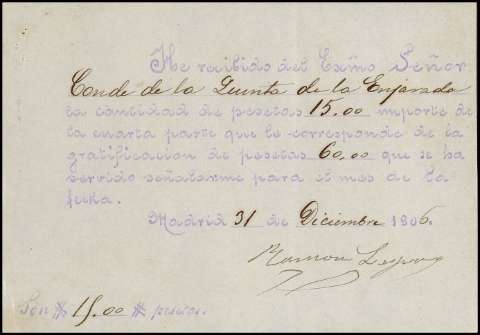 He recibido del Exmo Señor
Conde de la Quinta de la Enjarada
la cantidad de pesetas 15.00 importe de
la cuarta parte que le corresponde de la
gratificacion de pesetas 60.00 que se ha
servido señalarme para el mes de la
fecha.
Madrid 31 de Diciembre 1906.
Ramon
Son # 15.00 # pesetas.